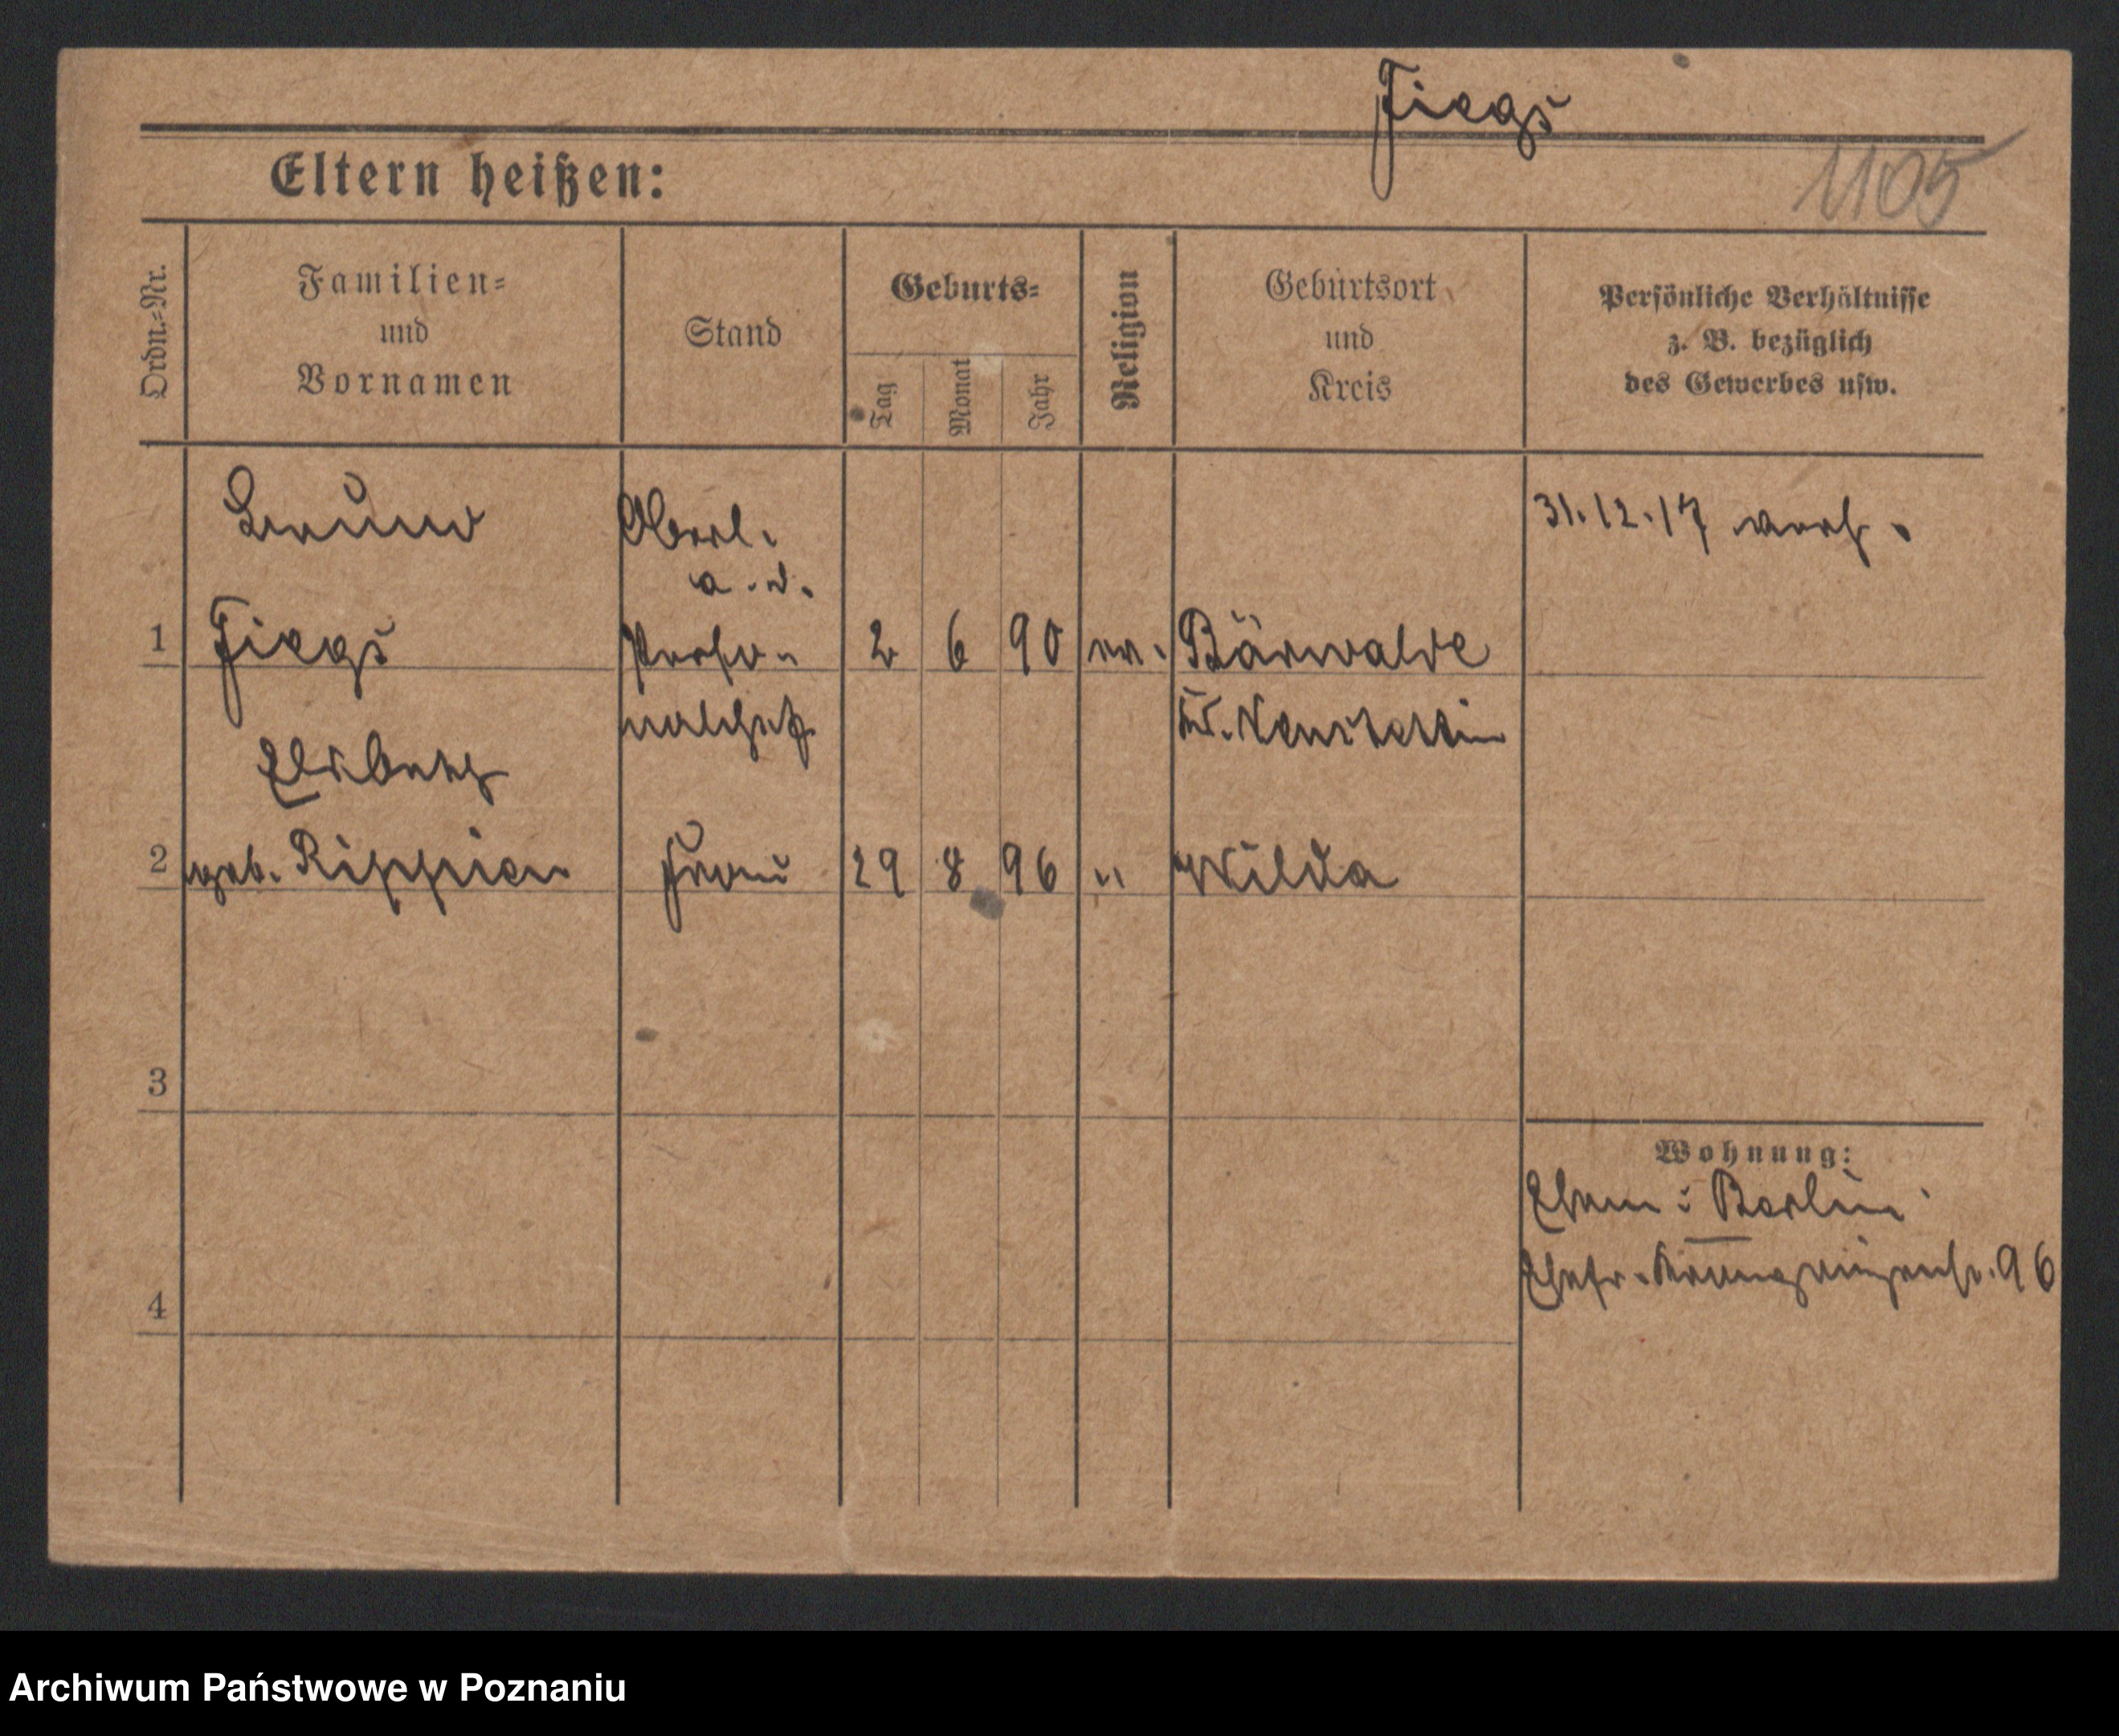 Fiegs
1105
Eltern heißen:
Ordn.-Nr.
Familien- und Vornamen
Stand
Geburts-
Tag
Monat
Jahr
Religion
Geburtsort und Kreis
Persönliche Verhältnisse z. B. bezüglich des Gewerbes usw.
Bruno
Oberl.
31.12.17 verh.
a. D.
1 Fiegs Perso- 2 6 90 ev. Bärwalde
Kr. Neustettin
Elisabeth
2 geb. Rippien Frau 29 8 96 " Wilda
3
Wohnung:
Ehem: Berlin
Ehefr. 96
4
Archiwum Państwowe w Poznaniu